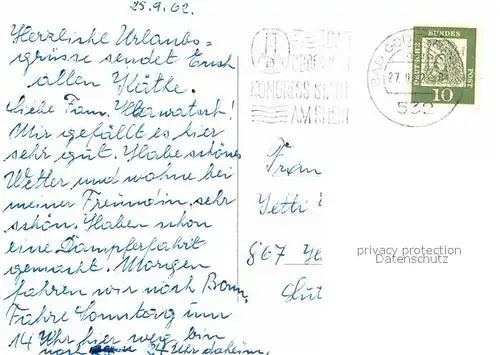 25.9.62.
Herzliche Urlaubs=
grüsse sendet Euch
allen Käthe.
Liebe Fam.
Mir gefällt es hier
sehr gut. Habe schönes
Wetter und wohne bei
meiner Freundin, sehr
schön. Haben schon
eine Dampferfahrt
gemacht. Morgen
fahren wir nach Bonn.
Fahre Sonntag um
14 Uhr hier weg bin
24 Uhr daheim.
BAD
KONGRESS-STADT
AM RHEIN
BAD GO
27.
532
DEUTSCHE
BUNDES
POST
10
Frau
Jetti
867
privacy protection
Datenschutz